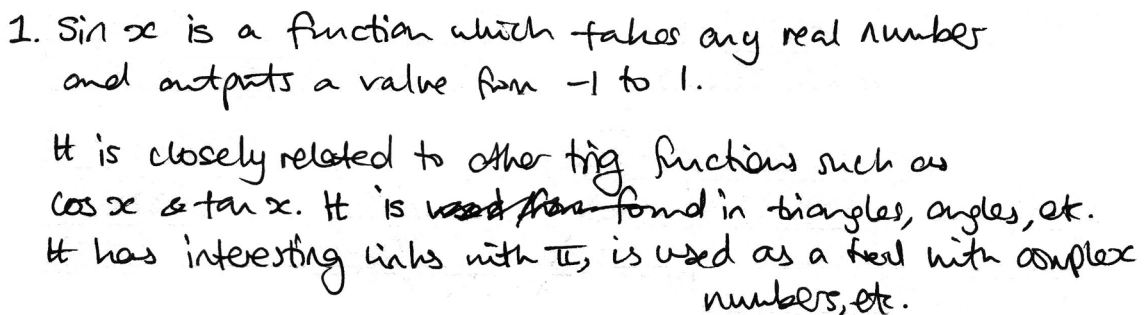 1. Sin x is a function which takes any real number
and outputs a value from -1 to 1.
It is closely related to other trig functions such as
cos x & tan x. It is found in triangles, angles, etc.
It has interesting links with π, is used as a tool with complex
numbers, etc.